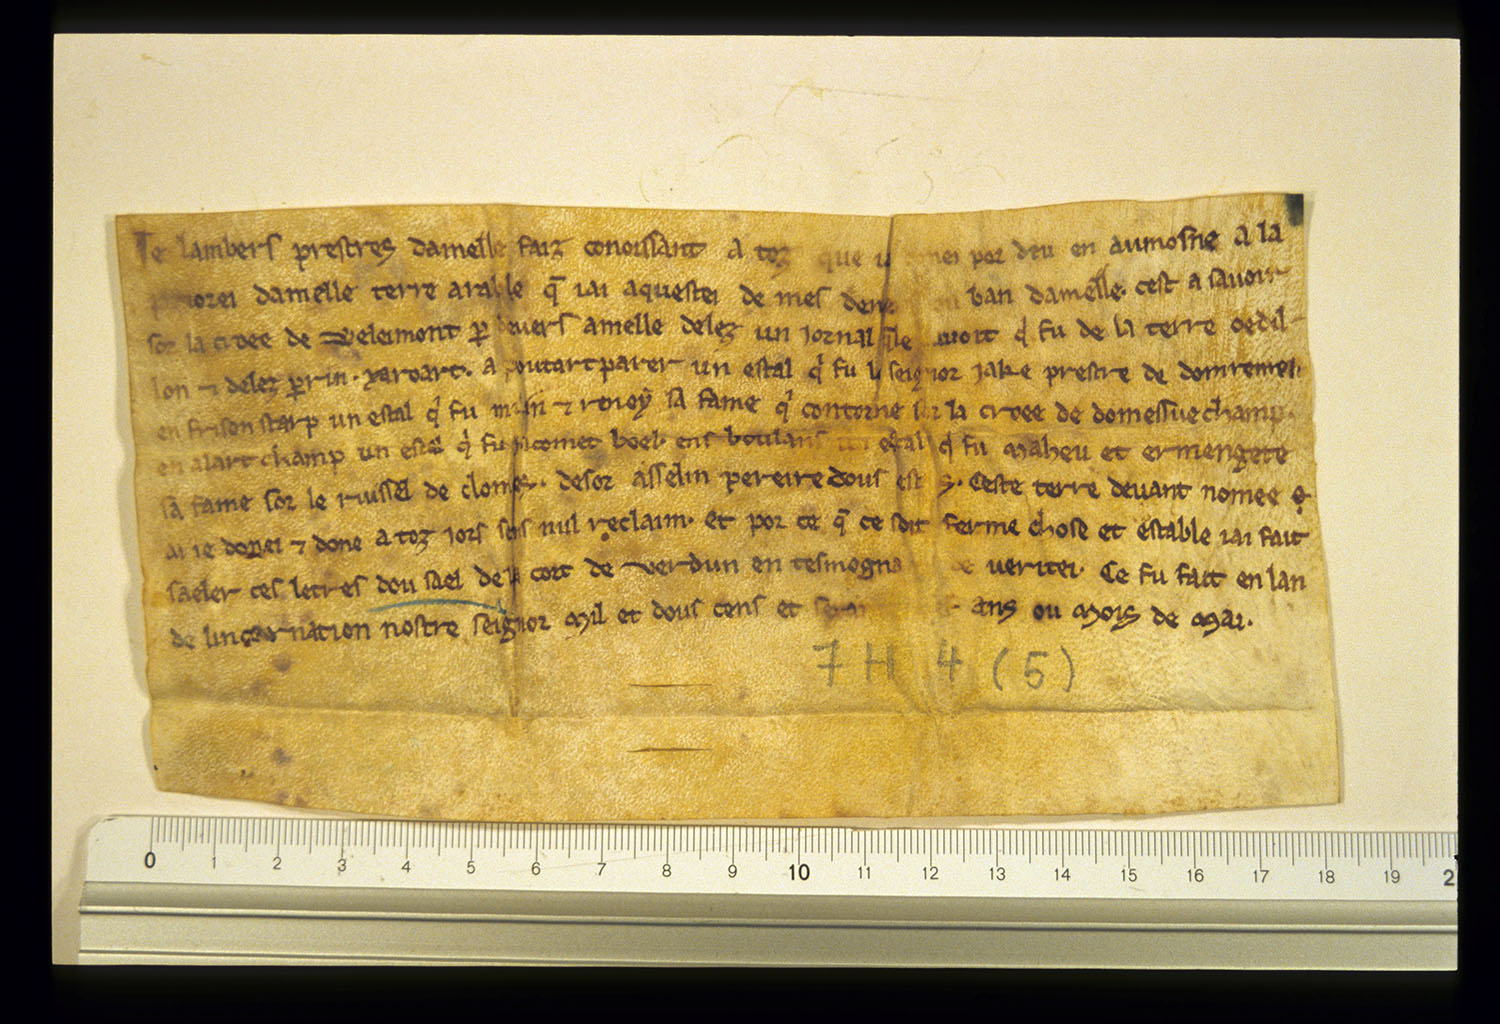 Je lambers prestres damelle faiz conoissant a toz que por deu en aumosne a la
damelle terre arable q̃ iai aquestei de mes ban damelle. cest a savoir
sor la croee de Weleimont ꝑ devers amelle delez un jornal qͥ fu de la terre oedil
lon ⁊ delez ꝑrin. a un estal qͥ fu seignor Jake prestre de domremei.
en frison starp un estal qͥ fu ⁊ sa fame qͥ contorne la croee de domessue champ.
en alart champ un estal qͥ fu boulans estal qͥ fu Maheu et ermengete
sa fame sor le ruissel de desor asselin pereire dous Ceste terre devant nomee
ai ie donei ⁊ done a toz jors sens nul reclaim. et por ce q̃ ce soit ferme chose et estable iai fait
saeler ces letres dou sael de cort de verdun en veritei. Ce fu fait en lan
de nostre seignor Mil et dous cens et ans ou Mois de Mai.
7 H 4 (5)
0 1 2 3 4 5 6 7 8 9 10 11 12 13 14 15 16 17 18 19 2